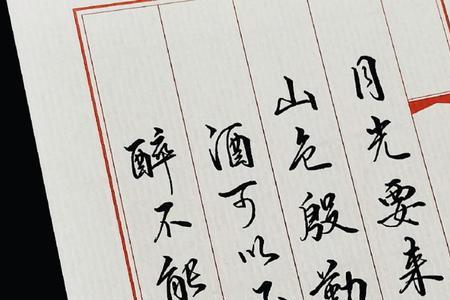 月光要来
山色殷勤
酒可以不
醉不能